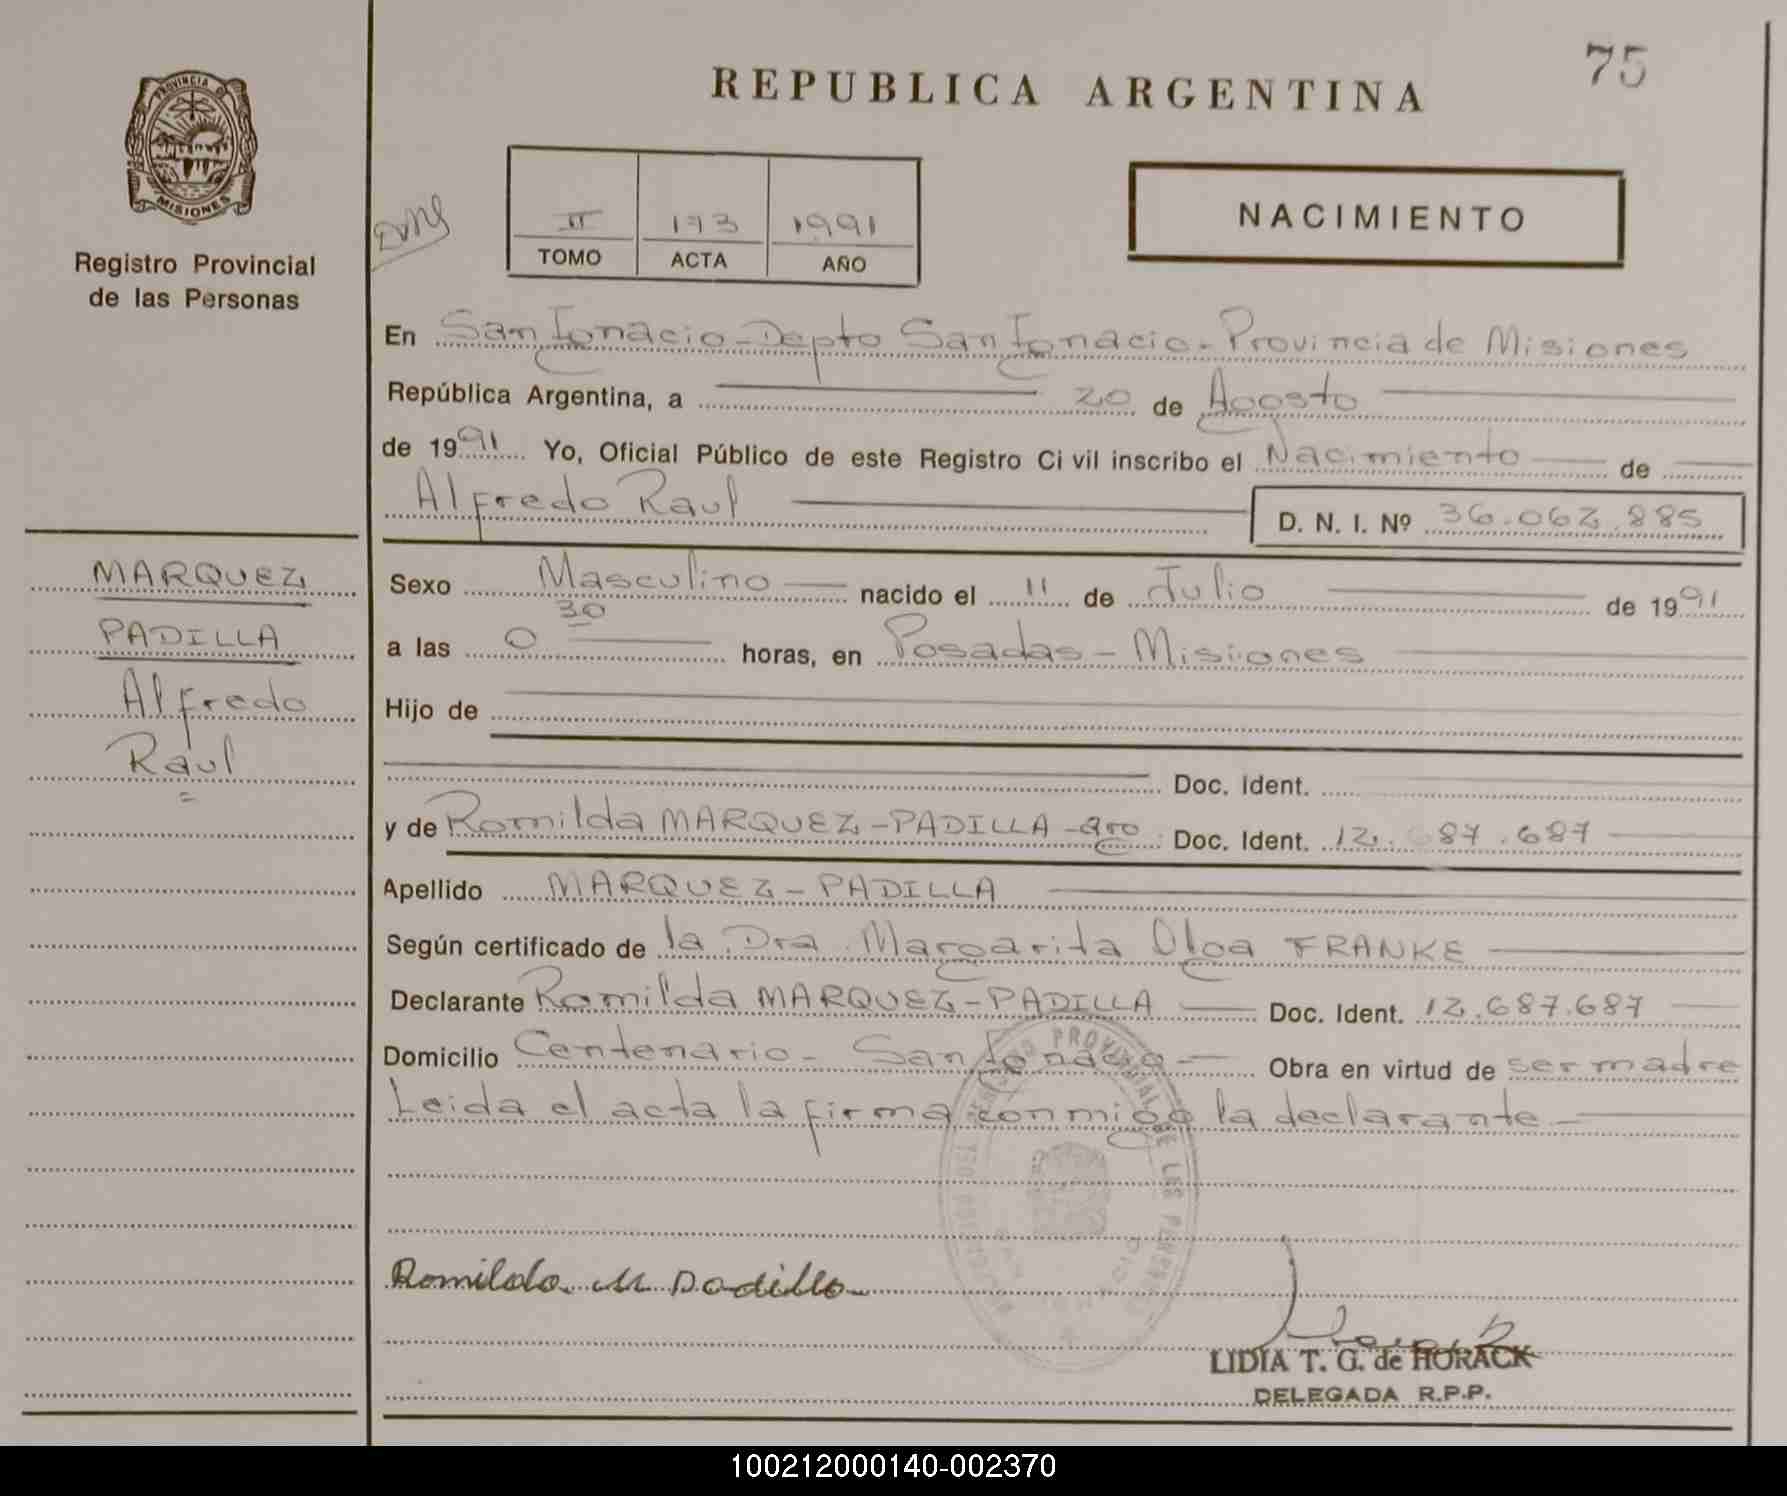 75
REPUBLICA ARGENTINA
PROVINCIA D
MISIONES
Registro Provincial
de las Personas
II 173 1991
TOMO ACTA AÑO
NACIMIENTO
En San Ignacio - Depto San Ignacio - Provincia de Misiones
República Argentina, a 20 de Agosto
de 1991 Yo, Oficial Público de este Registro Civil inscribo el Nacimiento de
Alfredo Raul D. N. I. Nº 36.062.885
MARQUEZ
PADILLA
Alfredo
Raul
Sexo Masculino nacido el 11 de Julio de 1991
a las 0 30 horas, en Posadas - Misiones
Hijo de
Doc. Ident.
y de Romilda MARQUEZ - PADILLA - Doc. Ident. 12. 87.687
Apellido MARQUEZ - PADILLA
Según certificado de la Dra. Margarita Olga FRANKE
Declarante Romilda MARQUEZ - PADILLA Doc. Ident. 12.687.687
Domicilio Centenario - San Ignacio - Obra en virtud de ser madre
Leida el acta la firma conmigo la declarante -
Romilda M Padilla
LIDIA T. G. de HORACK
DELEGADA R.P.P.
100212000140-002370